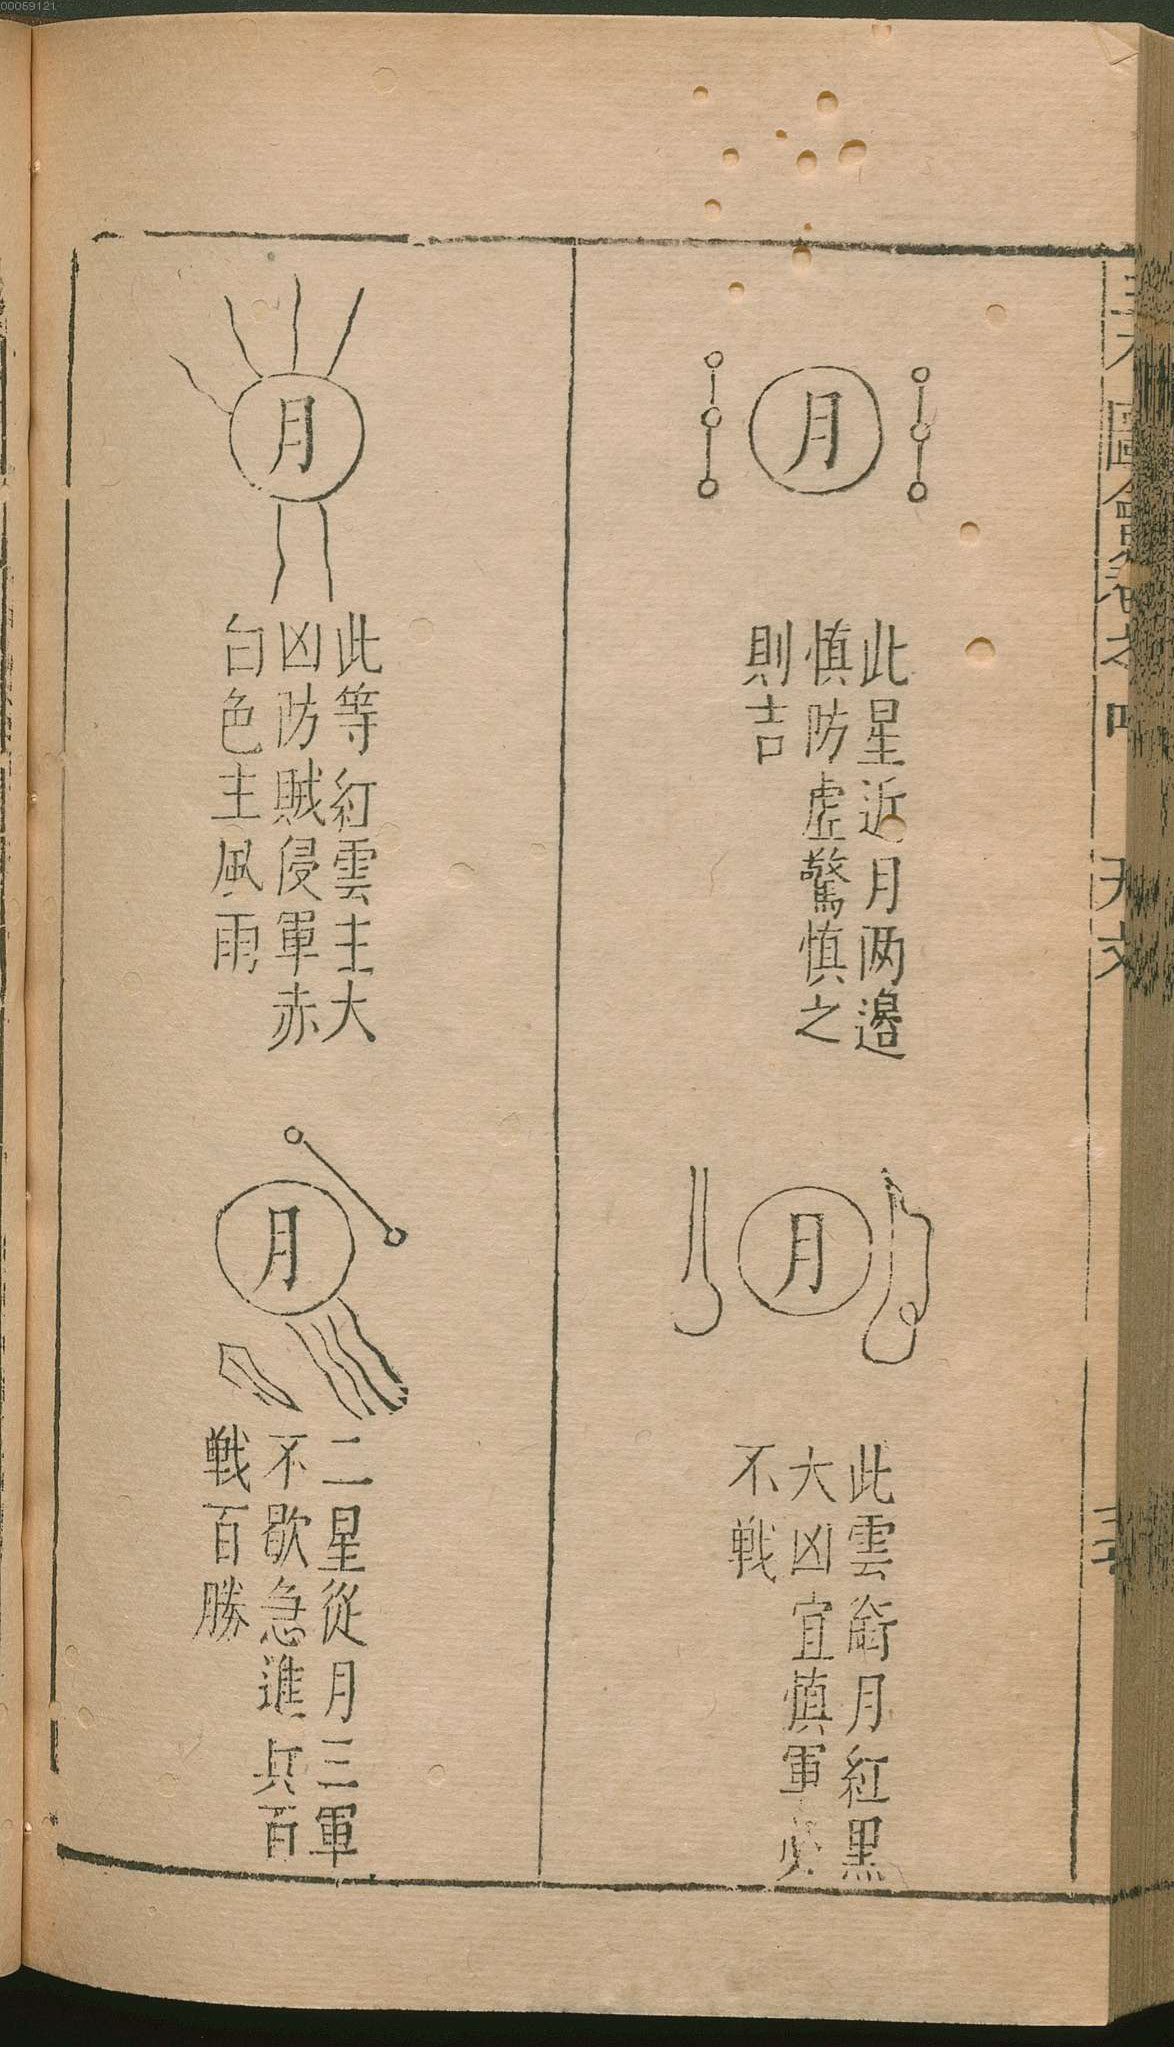 月
此星近月两邉
慎防虛驚慎之
則吉
月
此雲衝月紅黑
大凶宜慎軍必
不戦
月
此等紅雲主大
凶防賊侵軍赤
白色主風雨
月
二星從月三軍
不歇急進兵百
戦百勝
圖會
天文
00059121